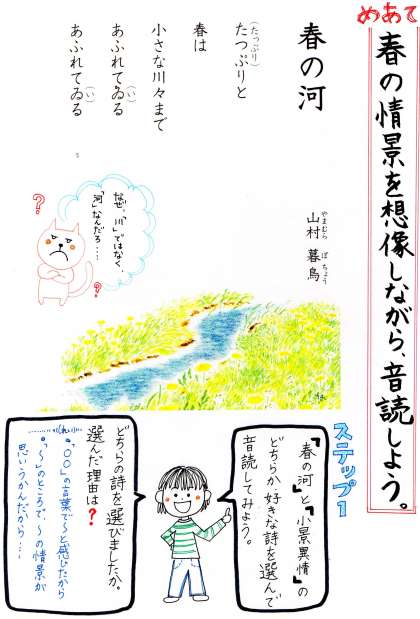 めあて
春の情景を想像しながら、音読しよう。
春の河
山村 暮鳥
やまむら ぼちょう
たっぷりと
(たっぷり)
春は
小さな川々まで
あふれてゐる
(い)
あふれてゐる
(い)
なぜ、「川」ではなく、
「河」なんだろ…
?
?
ステップ1
「春の河」と「小景異情」の
どちらか好きな詩を選んで
音読してみよう。
どちらの詩を選びましたか。
選んだ理由は?
(れい)
。"○○"の言葉で〜と感じたから
。"〜"のところで、〜の情景が
思いうかんだから…